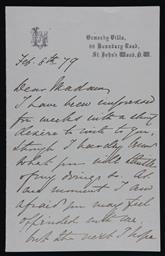 Ormesby Villa,
86 Boundary Road,
St. John's Wood, N.W.
Feb. 5th 79
Dear Madam,
I have been impressed
for weeks with a strong
desire to write to you,
though I hardly know
what you will think
of my doing so. At
one moment I am
afraid you may feel
offended with me,
but the next I hope